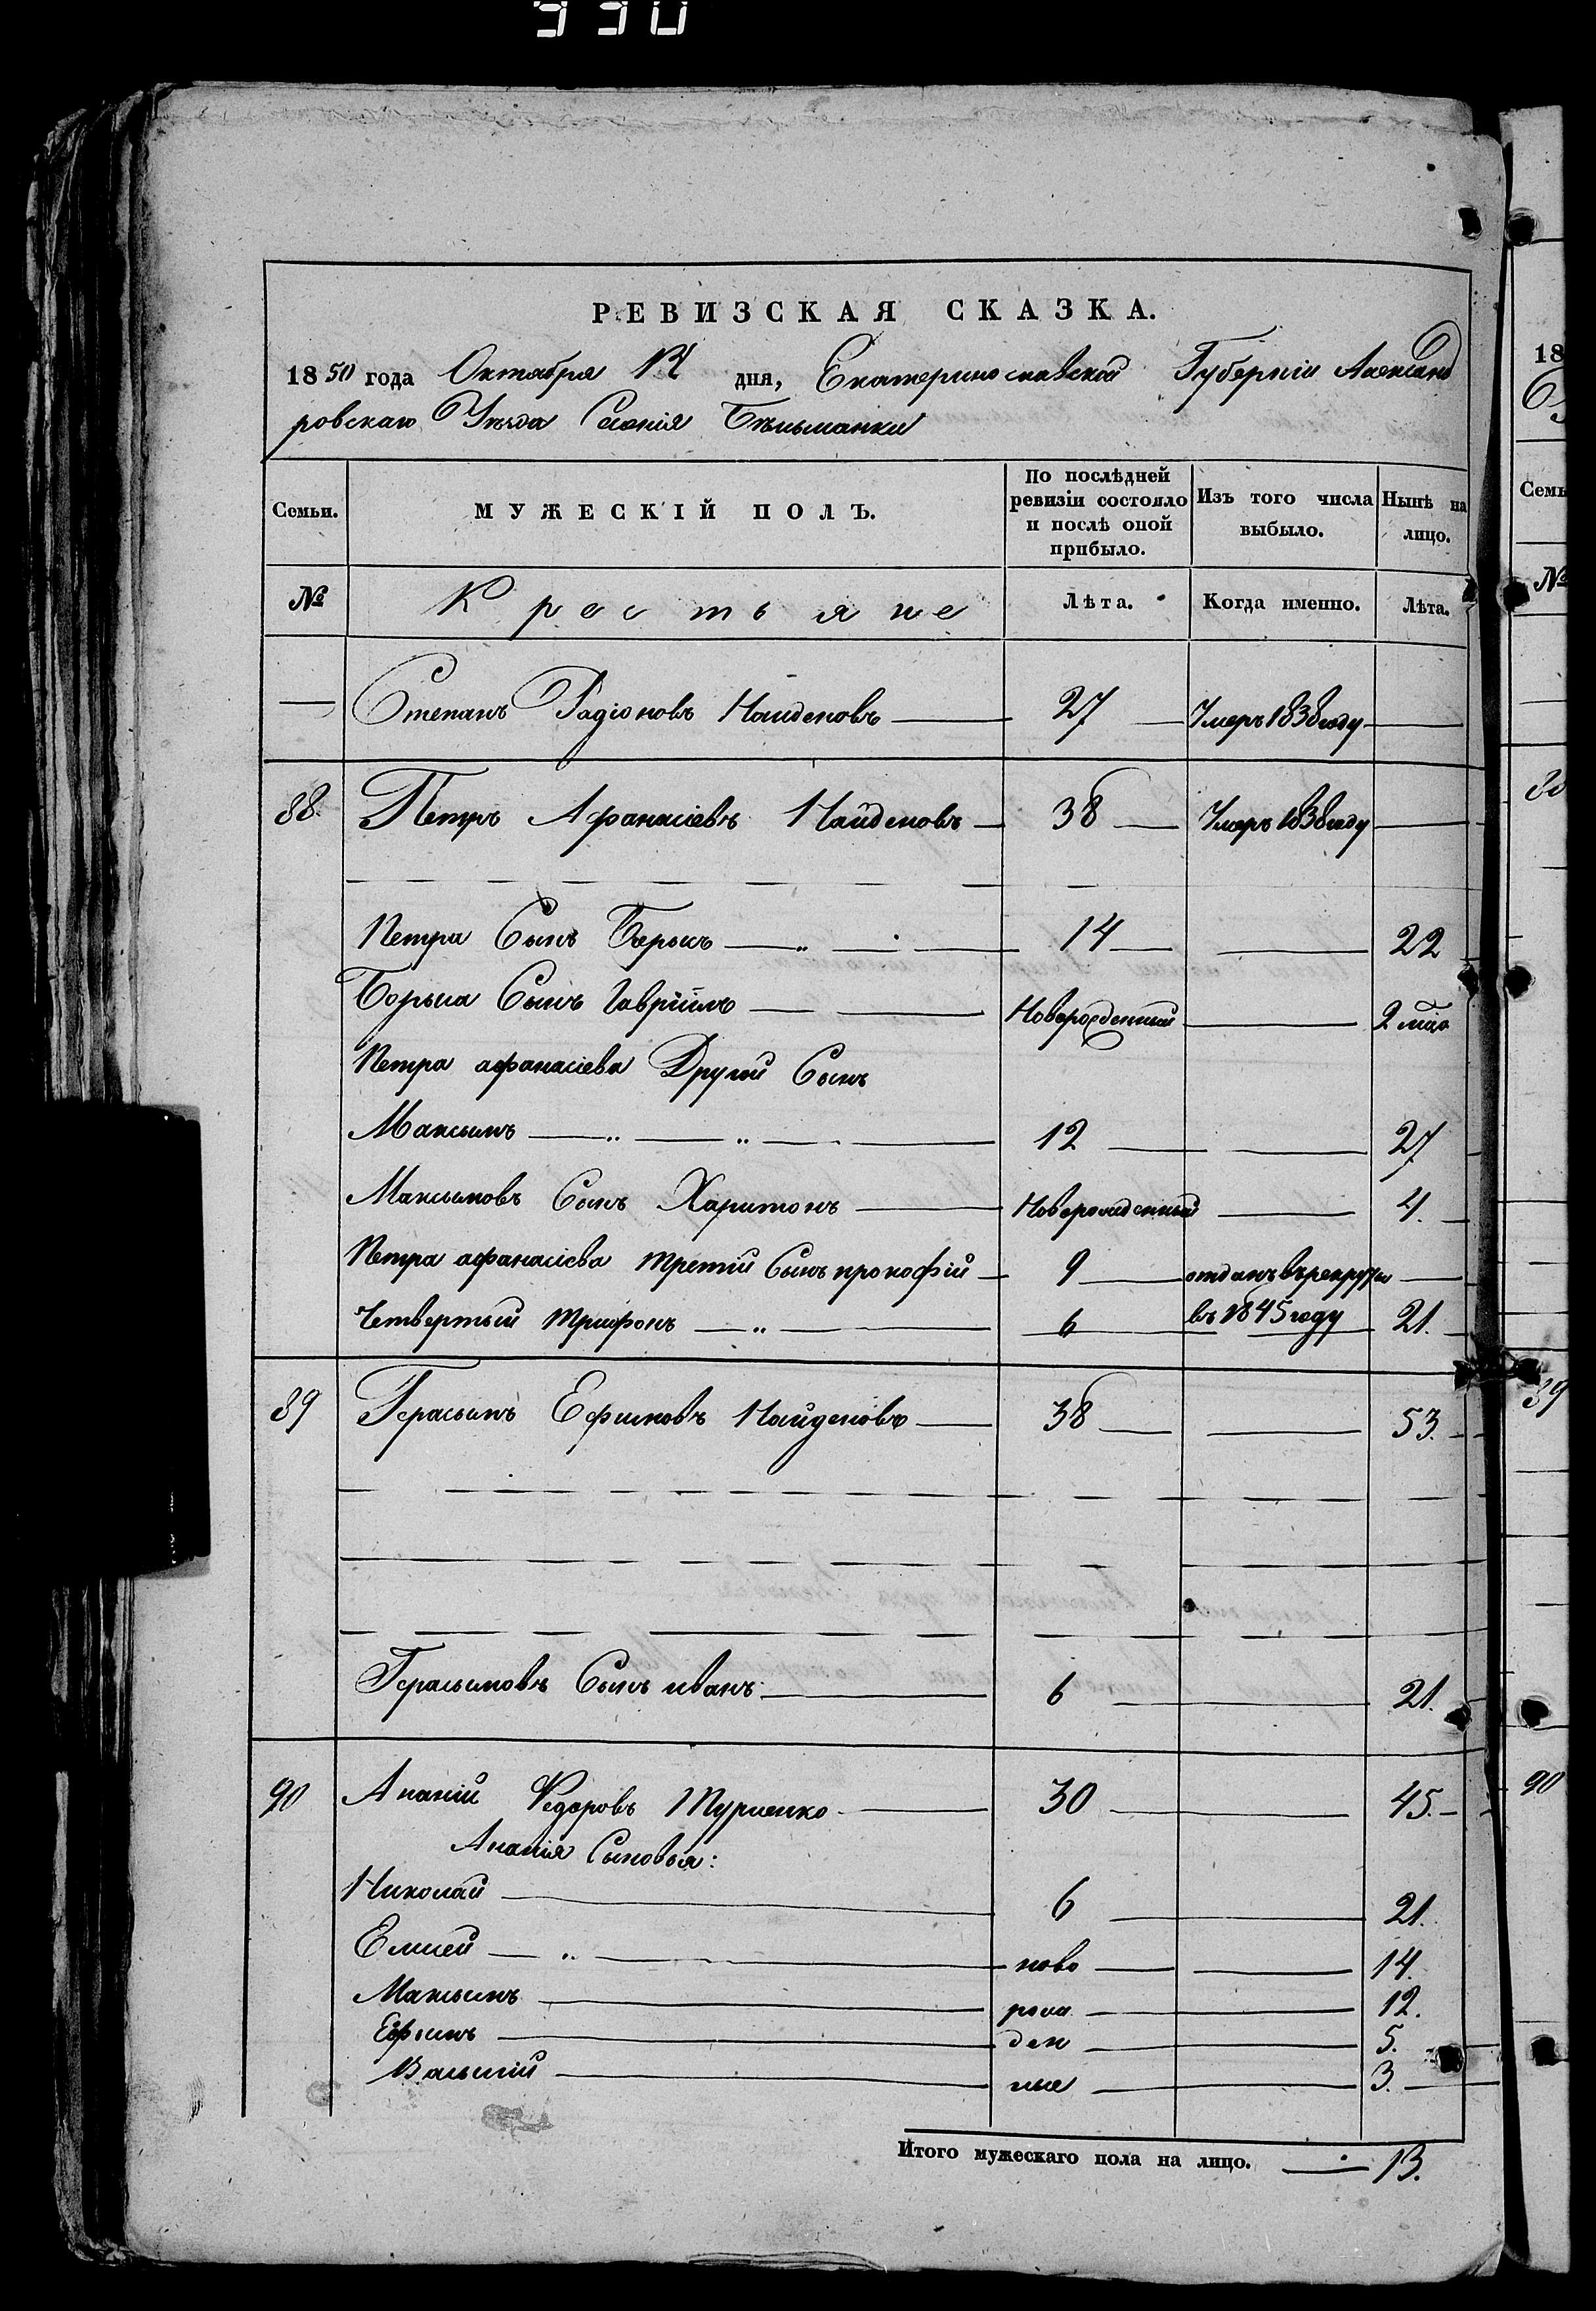 930
РЕВИЗСКАЯ СКАЗКА.
1850 года Октября дня, Екатеринославской Губерніи Александ
ровскаго Уѣзда Селенія Бѣльманки
Семьи.
МУЖЕСКІЙ ПОЛЪ.
По послѣдней ревизіи состояло и послѣ оной прибыло.
Изъ того числа выбыло.
Нынѣ на лицо.
№ Крестьяне Лѣта. Когда именно. Лѣта.
— Степанъ Радіоновъ Наиденовъ 27 Умеръ 1838 году
88. Петръ Афанасіевъ Найденовъ 38 Умеръ 1838 году
Петра Сынъ Борысъ 14 22
Борыса Сынъ Гавріилъ Новорожденный 2 мѣс
Петра афанасіева Другой Сынъ
Максымъ 12 27
Максымовъ Сынъ Харитонъ Новорожденный 4.
Петра афанасіева третій Сынъ прокофій 9 отданъ въ рекруты
Четвертый трифонъ 6 въ 1845 году 21.
89 Герасымъ Ефимовъ Найденовъ 38 53.
Герасымовъ Сынъ иванъ 6 21.
90 Ананій Федоровъ 30 45.
Ананія Сыновья:
Николай 6 21.
Елисей ново 14.
Максымъ рож 12.
Ефимъ ден 5.
Васылій ные 3.
Итого мужескаго пола на лицо. 13.
18
Семь
№
88
89
90